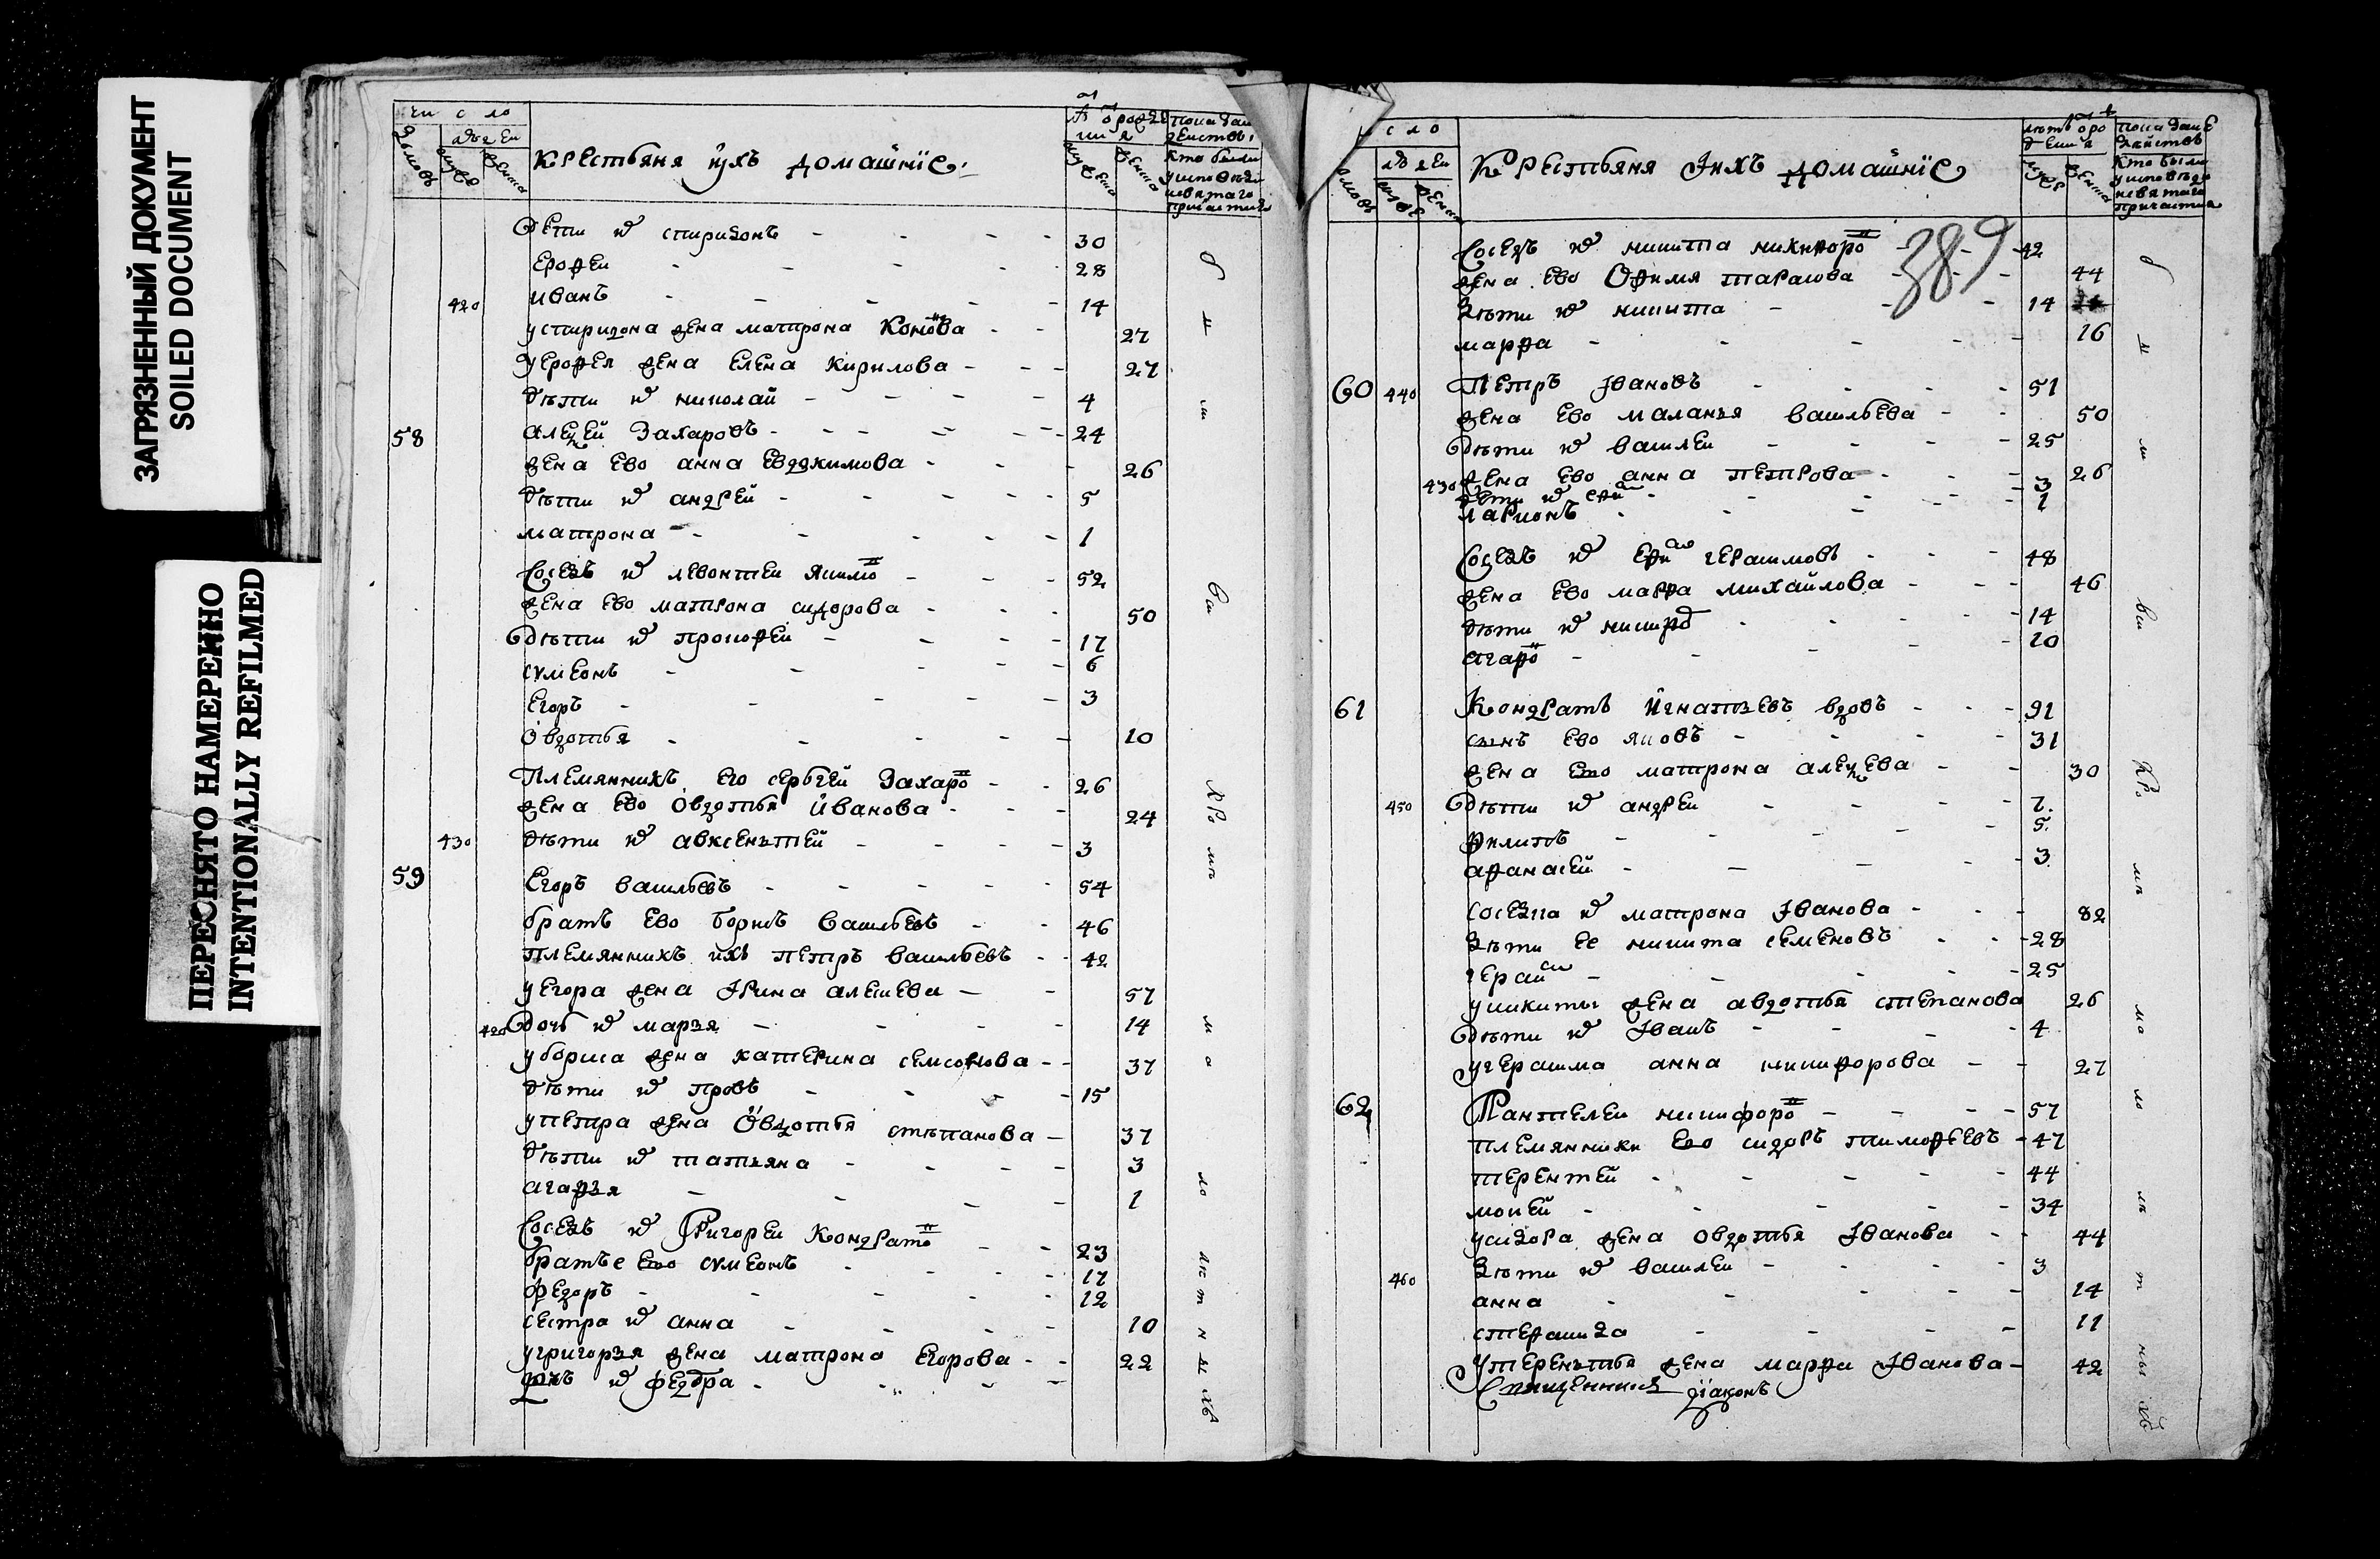 ЗАГРЯЗНЕННЫЙ ДОКУМЕНТ
SOILED DOCUMENT
ПЕРЕСНЯТО НАМЕРЕННО
INTENTIONALLY REFILMED
чи с ло
крестьяня ихъ домашнiе
кто были
Дети w спиридонъ 30
ерофеи 28
420 иванъ 14
успиридона жена матрона Конӧва 27
уерофея жена елена кирилова 27
дѣти w николай 4
58 алеѯей Захаровъ 24
жена ево анна Евдокимова 26
дѣти w андрей 5
матрона 1
Соседъ w левонтеи якимо 52
жена ево матрона сидорова 50
дѣти w прокофеи 17
сѵмеонъ 6
Егоръ 3
Овдотья 10
Племянникъ его сергей Захаро 26
жена ево Овдотья Иванова 24
430 дѣти w авксенътей 3
59 Егоръ васильевъ 54
братъ ево борисъ васильевъ 46
племянникъ ихъ петръ васильевъ 42
уегора жена Ірина алеѯева 57
420 дочь w марѳя 14
убориса жена катерина семсонова 37
дѣти w провъ 15
упетра жена Овдотья стѣпанова 37
дѣти w татьяна 3
агафья 1
Соседъ w Григореи Кондрато 23
братье ево сѵмеонъ 17
федоръ 12
сестра w анна 10
угригорья жена матрона егорова 22
w федора
с л о
Крестьяня Ихъ домашнiе
кто были
389
Соседъ w никита никифоро 42
жена ево Офимя тарасова 44
дѣти w никита 14
марфа 16
60 440 Петръ Ивановъ 51
жена ево маланья васильева 50
дѣти w василеи 25
430 жена ево анна петрова 26
дети w 3
ларионъ 1
Соседъ w герасимовъ 48
жена ево марфа михайлова 46
дѣти w никифо 14
агафо 10
61 Кондратъ Игнатьевъ вдовъ 91
сынъ ево яковъ 31
жена ево матрона алеѯеева 30
450 дѣти w андреи 7.
филипъ 5.
афанасей 3
соседка w матрона Іванова 82
дѣти ее никита семеновъ 28
гераси 25
уникиты жена авдотья степанова 26
дѣти w Іванъ 4
угерасима анна никифорова 27
62 Пантелеи никифоро 57
племянники ево сидоръ тимофеевъ 47
терентей 44
мокей 34
усидора жена Овдотья Іванова 44
460 дѣти w василеи 3
анна 14
степанида 11
Утеренътья жена марфа Іванова 42
Священникъ дiаконъ